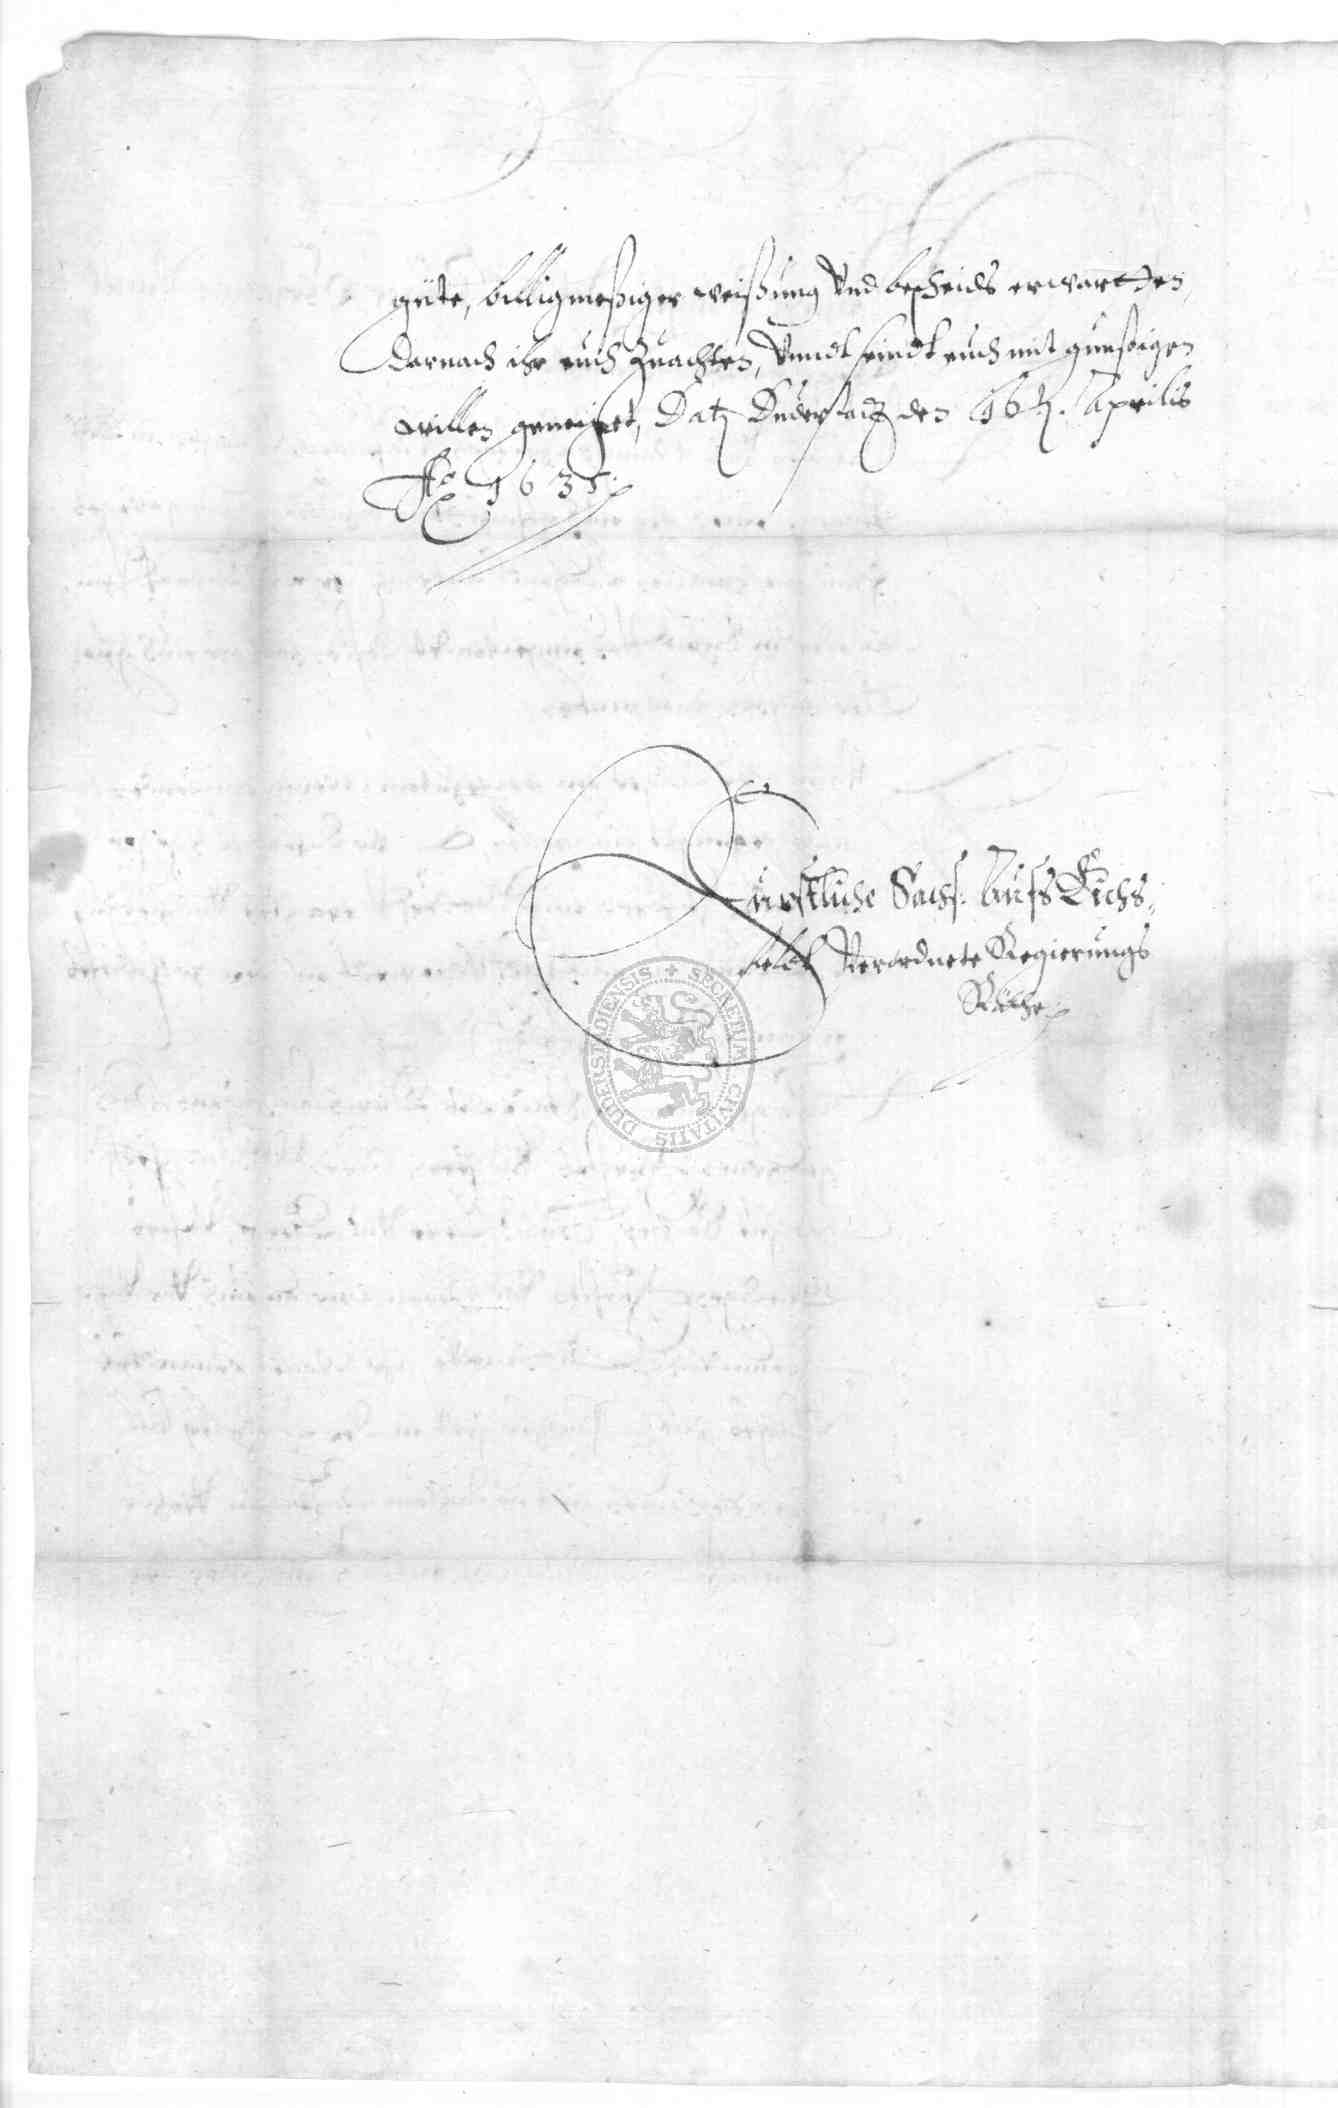 güte, billigmeßiger weißung Vnd bescheids erwartten,
darnach ihr euch Zuachten, Vnndt seindt euch mit günstigen
willen geneiget, Dat. Duderstadt den 16t. Aprilis
Ao 1635.
Fürstliche Sächs: Aufs Eichs-
feldt Verordnete Regierungs
Räthe
SECRETUM CIVITATIS DUDERSTADIENSIS